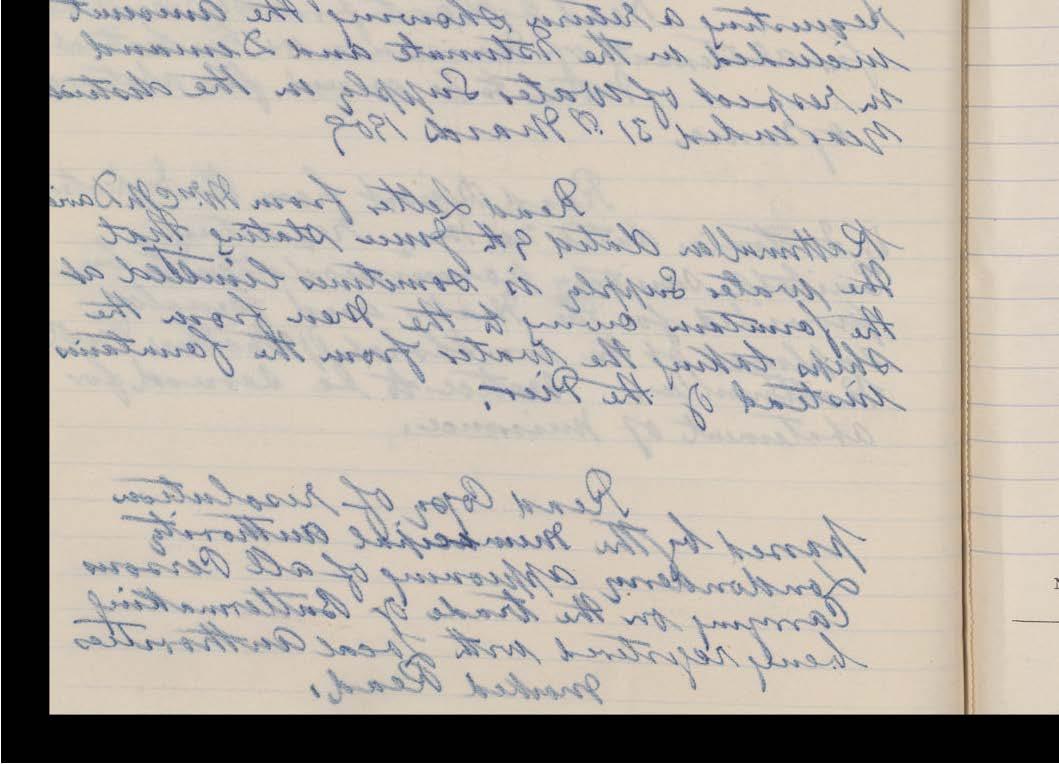 requesting a return showing the amount
included in the Estimate and Demand
in respect of Water Supply in the district
Year ended 31st March 1909
Read Letter from
Rathmullan dated 9th June stating that
the Water Supply is sometimes limited at
the fountain owing to the Men from the
Ships taking the Water from the fountain
instead of the Pier.
abatement of nuisance.
Read Copy of resolution
passed by the Municipal Authority
Londonderry approving of all Persons
Carrying on the trade of Buttermaking
being registered with Local Authorities
Marked Read.